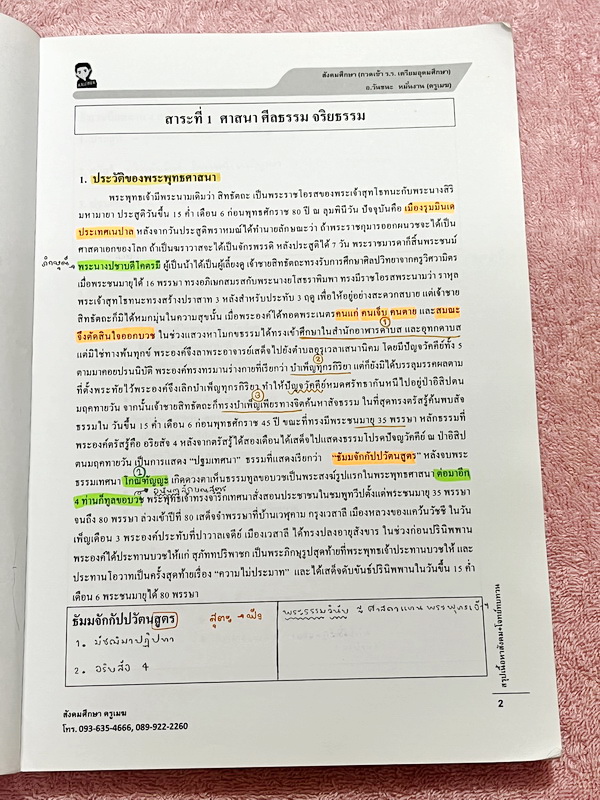 สังคมศึกษา (กวดเข้า ร.ร. เตรียมอุดมศึกษา)
อ.วันชนะ หมื่นงาน (ครูเมฆ)
สาระที่ 1 ศาสนา ศีลธรรม จริยธรรม
1. ประวัติของพระพุทธศาสนา
พระพุทธเจ้ามีพระนามเดิมว่า สิทธัตถะ เป็นพระราชโอรสของพระเจ้าสุทโธทนะกับพระนางสิริ
มหามายา ประสูติวันขึ้น 15 ค่ำ เดือน 6 ก่อนพุทธศักราช 80 ปี ณ ลุมพินีวัน ปัจจุบันคือ เมืองรุมมินเด
ประเทศเนปาล หลังจากวันประสูติพราหมณ์ได้ทำนายลักษณะว่า ถ้าพระราชกุมารออกผนวชจะได้เป็น
ศาสดาเอกของโลก ถ้าเป็นฆราวาสจะได้เป็นจักรพรรดิ หลังประสูติได้ 7 วัน พระราชมารดาก็สิ้นพระชนม์
พระนางปชาบดีโคตรมี ผู้เป็นน้าได้เป็นผู้เลี้ยงดู เจ้าชายสิทธัตถะทรงรับการศึกษาศิลปวิทยาจากครูวิศวามิตร
เมื่อพระชนมายุได้ 16 พรรษา ทรงอภิเษกสมรสกับพระนางยโสธราพิมพา ทรงมีราชโอรสพระนามว่า ราหุล
พระเจ้าสุทโธทนะทรงสร้างปราสาท 3 หลังสำหรับประทับ 3 ฤดู เพื่อให้อยู่อย่างสะดวกสบาย แต่เจ้าชาย
สิทธัตถะก็มิได้หมกมุ่นในความสุขนั้น เมื่อพระองค์ได้ทอดพระเนตรคนแก่ คนเจ็บ คนตาย และสมณะ
จึงตัดสินใจออกบวช ในช่วงแสวงหาโมกขธรรมได้ทรงเข้าศึกษาในสำนักอาฬารดาบส และอุทกดาบส
แต่มิใช่ทางพ้นทุกข์ พระองค์จึงลาพระอาจารย์เสด็จไปยังตำบลอุรุเวลาเสนานิคม โดยมีปัญจวัคคีย์ทั้ง 5
ตามมาคอยปรนนิบัติ พระองค์ทรงทรมานร่างกายที่เรียกว่า บำเพ็ญทุกรกิริยา แต่ก็ยังมิได้บรรลุมรรคผลตาม
ที่ตั้งพระทัยไว้พระองค์จึงเลิกบำเพ็ญทุกรกิริยา ทำให้ปัญจวัคคีย์หมดศรัทธากันหนีไปอยู่ป่าอิสิปตน
มฤคทายวัน จากนั้นเจ้าชายสิทธัตถะก็ทรงบำเพ็ญเพียรทางจิตค้นหาสัจธรรม ในที่สุดทรงตรัสรู้ค้นพบสัจ
ธรรมใน วันขึ้น 15 ค่ำ เดือน 6 ก่อนพุทธศักราช 45 ปี ขณะที่ทรงมีพระชนมายุ 35 พรรษา หลักธรรมที่
พระองค์ตรัสรู้คือ อริยสัจ 4 หลังจากตรัสรู้ได้สองเดือนได้เสด็จไปแสดงธรรมโปรดปัญจวัคคีย์ ณ ป่าอิสิป
ตนมฤคทายวัน เป็นการแสดง “ปฐมเทศนา” ธรรมที่แสดงเรียกว่า “ธัมมจักกัปปวัตนสูตร” หลังจบพระ
ธรรมเทศนา โกณฑัญญะ เกิดดวงตาเห็นธรรมทูลขอบวชเป็นพระสงฆ์รูปแรกในพระพุทธศาสนา ต่อมาอีก
4 ท่านก็ทูลขอบวช พระพุทธเจ้าทรงจาริกเทศนาสั่งสอนประชาชนในชมพูทวีปตั้งแต่พระชนมายุ 35 พรรษา
จนถึง 80 พรรษา ล่วงเข้าปีที่ 80 เสด็จจำพรรษาที่บ้านเวฬุคาม กรุงเวสาลี เมืองหลวงของแคว้นวัชชี ในวัน
เพ็ญเดือน 3 พระองค์ประทับที่ปาวาลเจดีย์ เมืองเวสาลี ได้ทรงปลงอายุสังขาร ในช่วงก่อนปรินิพพาน
พระองค์ได้ประทานบวชให้แก่ สุภัททปริพาชก เป็นพระภิกษุรูปสุดท้ายที่พระพุทธเจ้าประทานบวชให้ และ
ประทานโอวาทเป็นครั้งสุดท้ายเรื่อง “ความไม่ประมาท” และได้เสด็จดับขันธ์ปรินิพพานในวันขึ้น 15 ค่ำ
เดือน 6 พระชนมายุได้ 80 พรรษา
ธัมมจักกัปปวัตนสูตร
1. มัชฌิมาปฏิปทา
2. อริยสัจ 4
พระธรรมวินัย
สรุปเนื้อหาสังคม+โจทย์ทบทวน
สังคมศึกษา ครูเมฆ
โทร. 093-635-4666, 089-922-2260
2